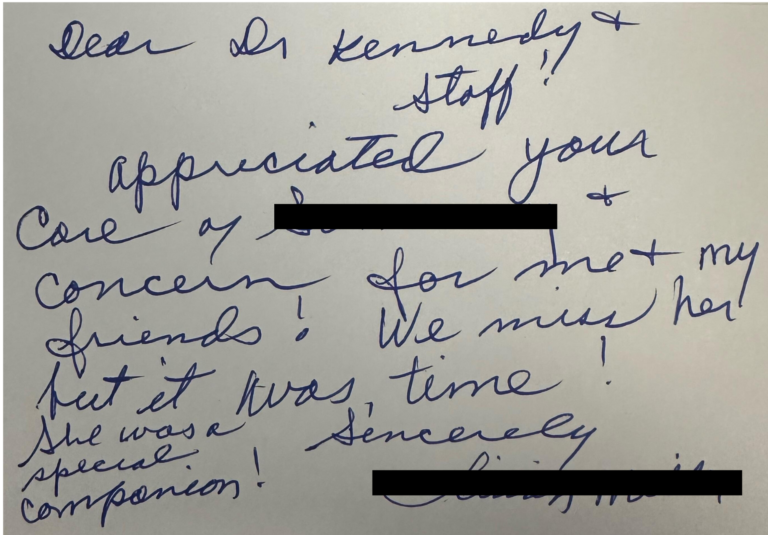 Dear Dr Kennedy &
Staff!
appreciated your
Care of &
concern for me & my
friends! We miss her
but it was, time!
She was a
special
companion!
Sincerely